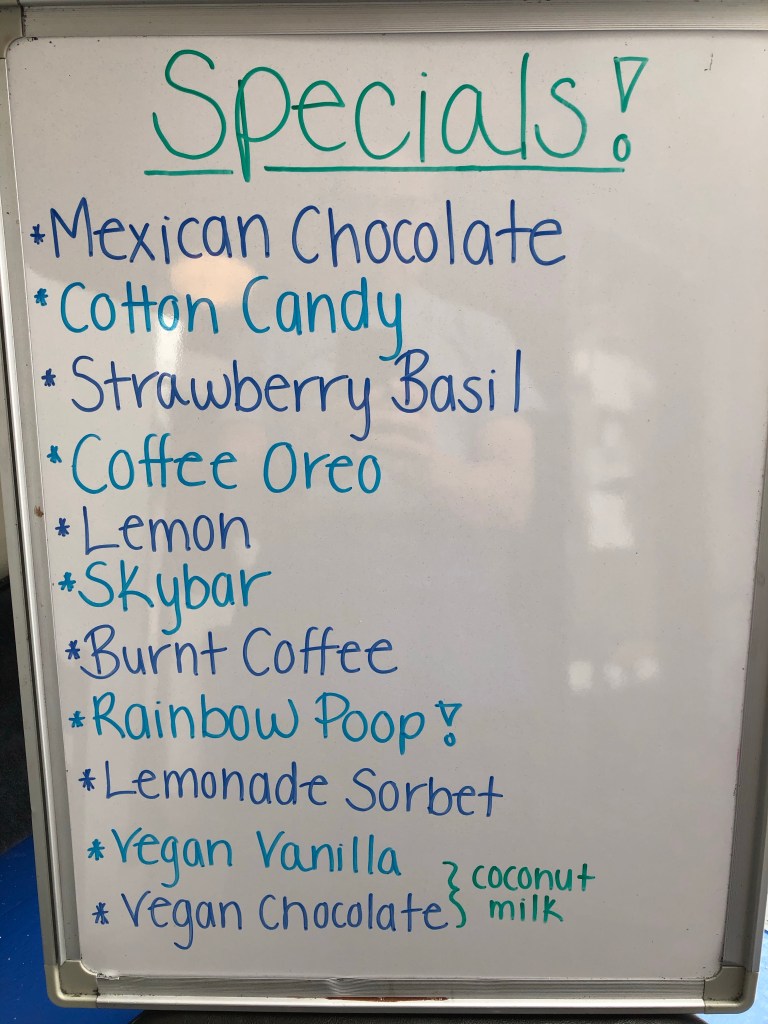 Specials!
*Mexican Chocolate
*Cotton Candy
*Strawberry Basil
*Coffee Oreo
*Lemon
*Skybar
*Burnt Coffee
*Rainbow Poop!
*Lemonade Sorbet
*Vegan Vanilla
*Vegan Chocolate
} coconut
milk